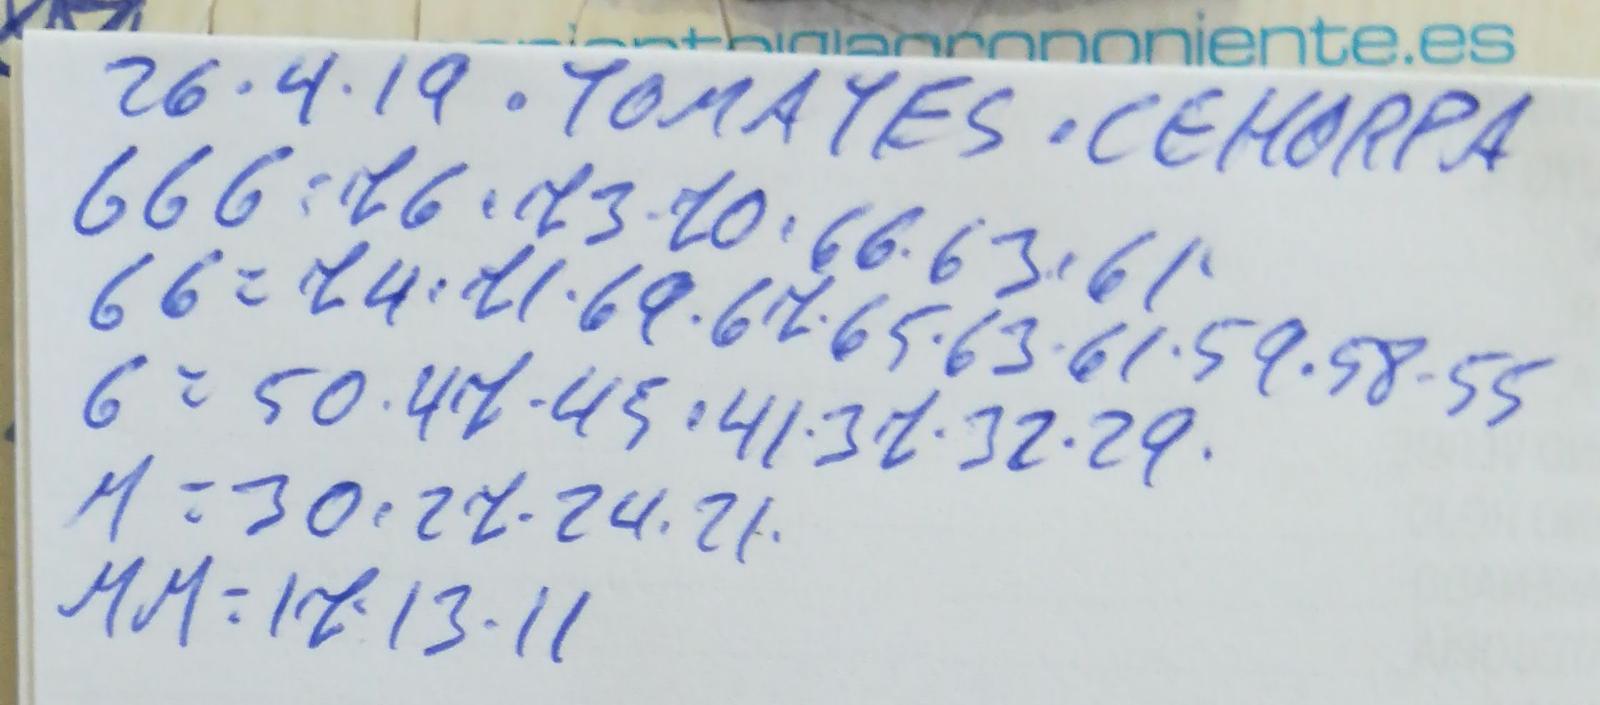 ponientе.es
26·4·19·TOMATES·CEHORPA
666=76·73·70·66·63·61·
66=74·71·69·67·65·63·61·59·58·55
6=50·47·45·41·37·32·29.
M=30·27·24·21.
MM=17·13·11